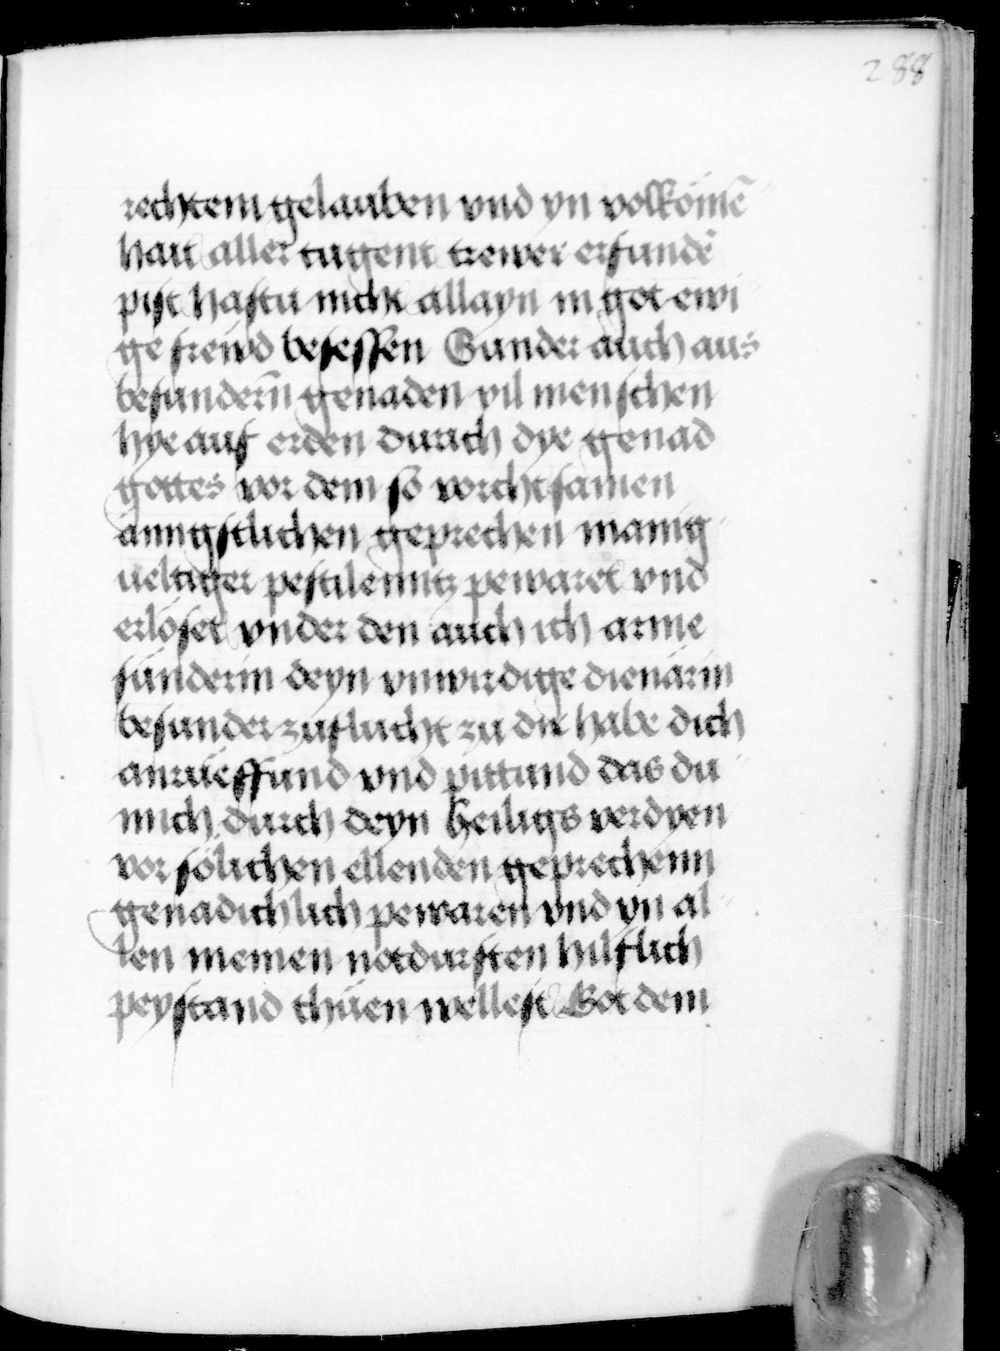 288
rechtem gelauben vnd yn volkömē
hait aller tugent trewer erfundē
pist hastu nicht allayn in got ewi
ge frewd besessen Sunder auch aus
besundern̄ genaden vil menschen
hye auf erden durch dye genad
gottes vor dem so vorchtsamen
änngstlichen geprechen manig
ueltiger pestilenntz pewaret vnd
erlöset vnder den auch ich arme
sünderin deyn vnwirdige dienärin
besunder zuflucht zu dir habe dich
anrüeffund vnd pittund das du
mich durch deyn heiligs verdyen
vor sölichen ellenden geprechenn
genadichlich pewaren vnd yn al
len meinen notdurften hilflich
peystand thüen wellest Bot dem